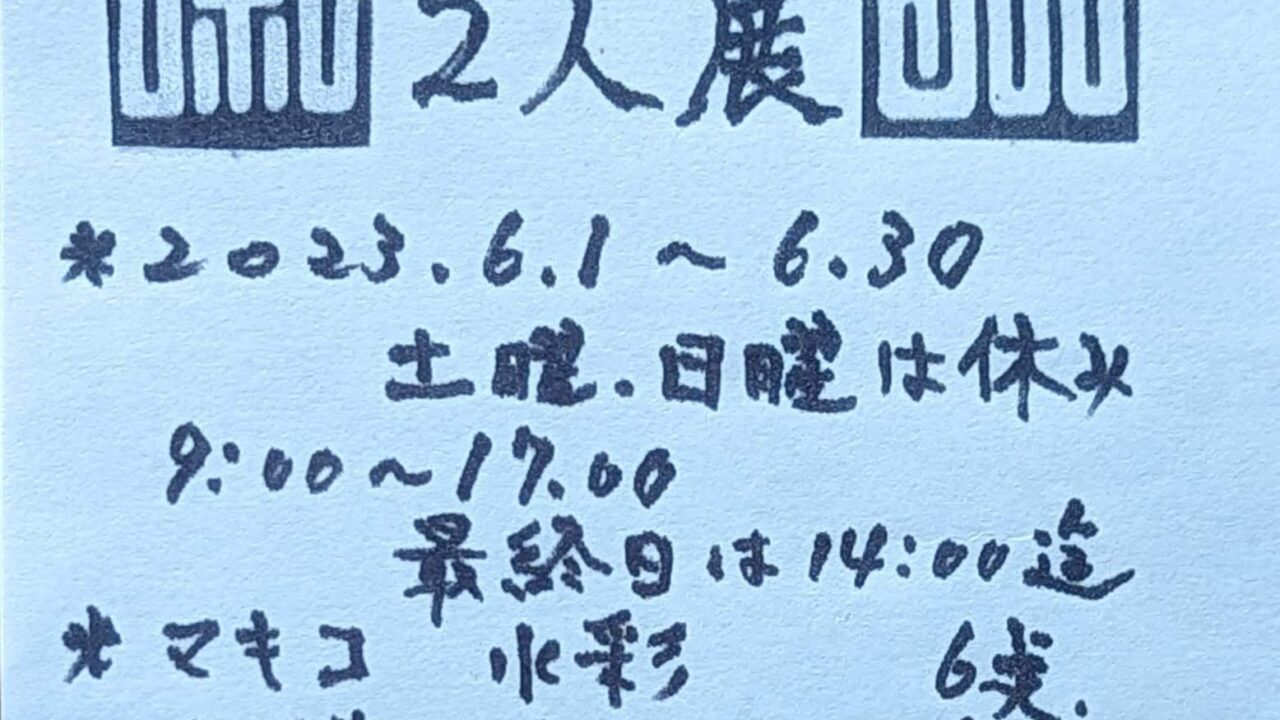 2人展
*2023.6.1〜6.30
土曜.日曜は休み
9:00〜17.00
最終日は14:00迄
*マキコ 水彩 6点.